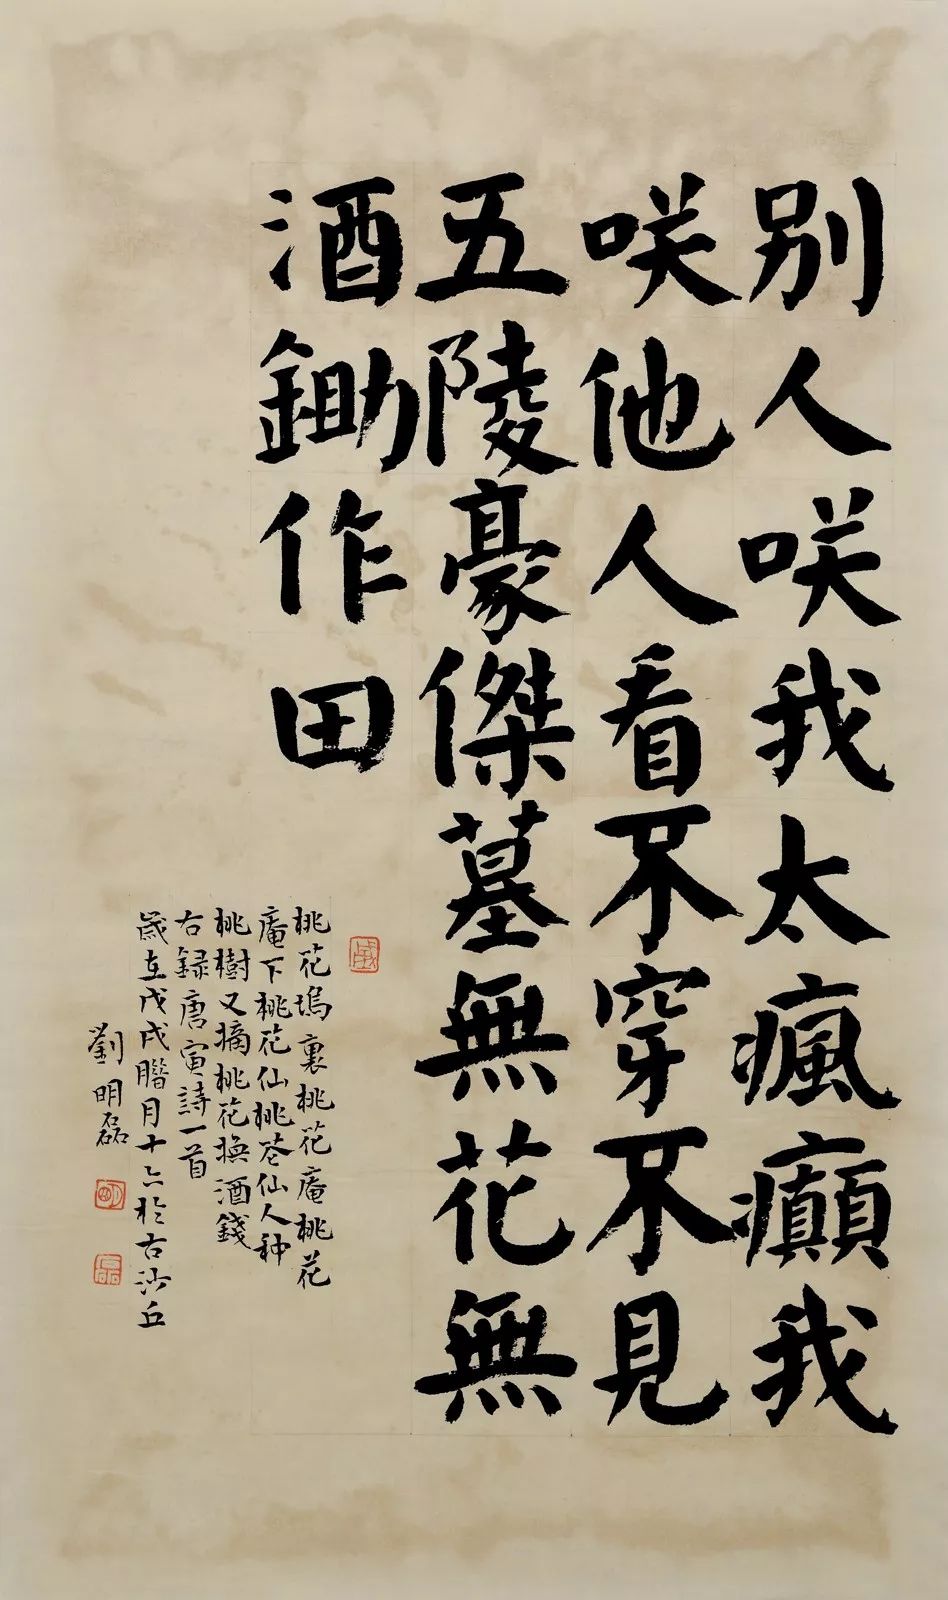 别人咲我太瘋癲我
咲他人看不穿不見
五陵豪傑墓無花無
酒鋤作田
桃花塢裏桃花庵桃花
庵下桃花仙桃花仙人种
桃樹又摘桃花換酒錢
右録唐寅詩一首
歲在戊戌臘月十六於古沙丘
劉明磊